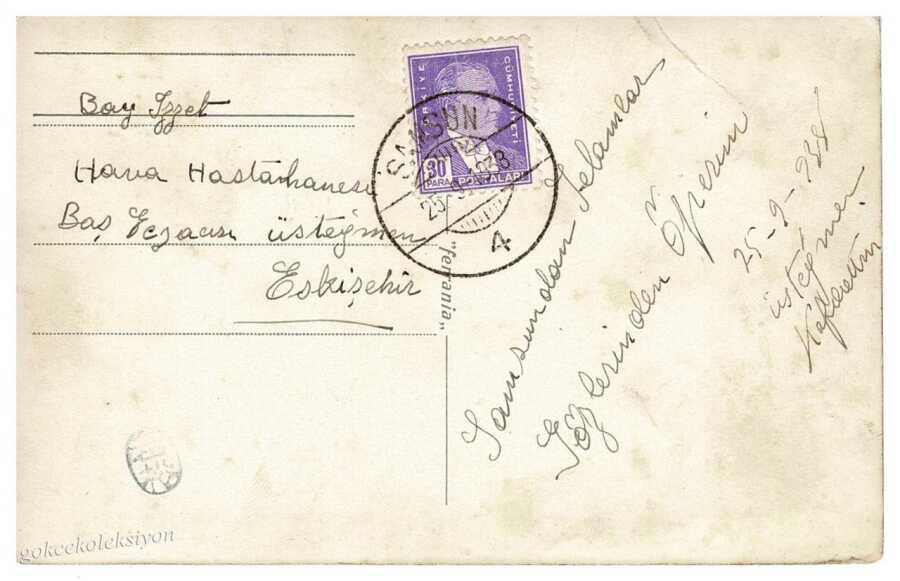 Bay İzzet
Hava Hastahanesi
Baş Eczacısı üsteğmen
Eskişehir
TÜRKİYE CÜMHURİYETİ
30 PARA POSTALARI
SAMSUN
25-9-1938
4
"ferrania"
Samsundan Selamlar
Gözlerinden Öperim
25-9-938
üsteğmen
gokcekoleksiyon